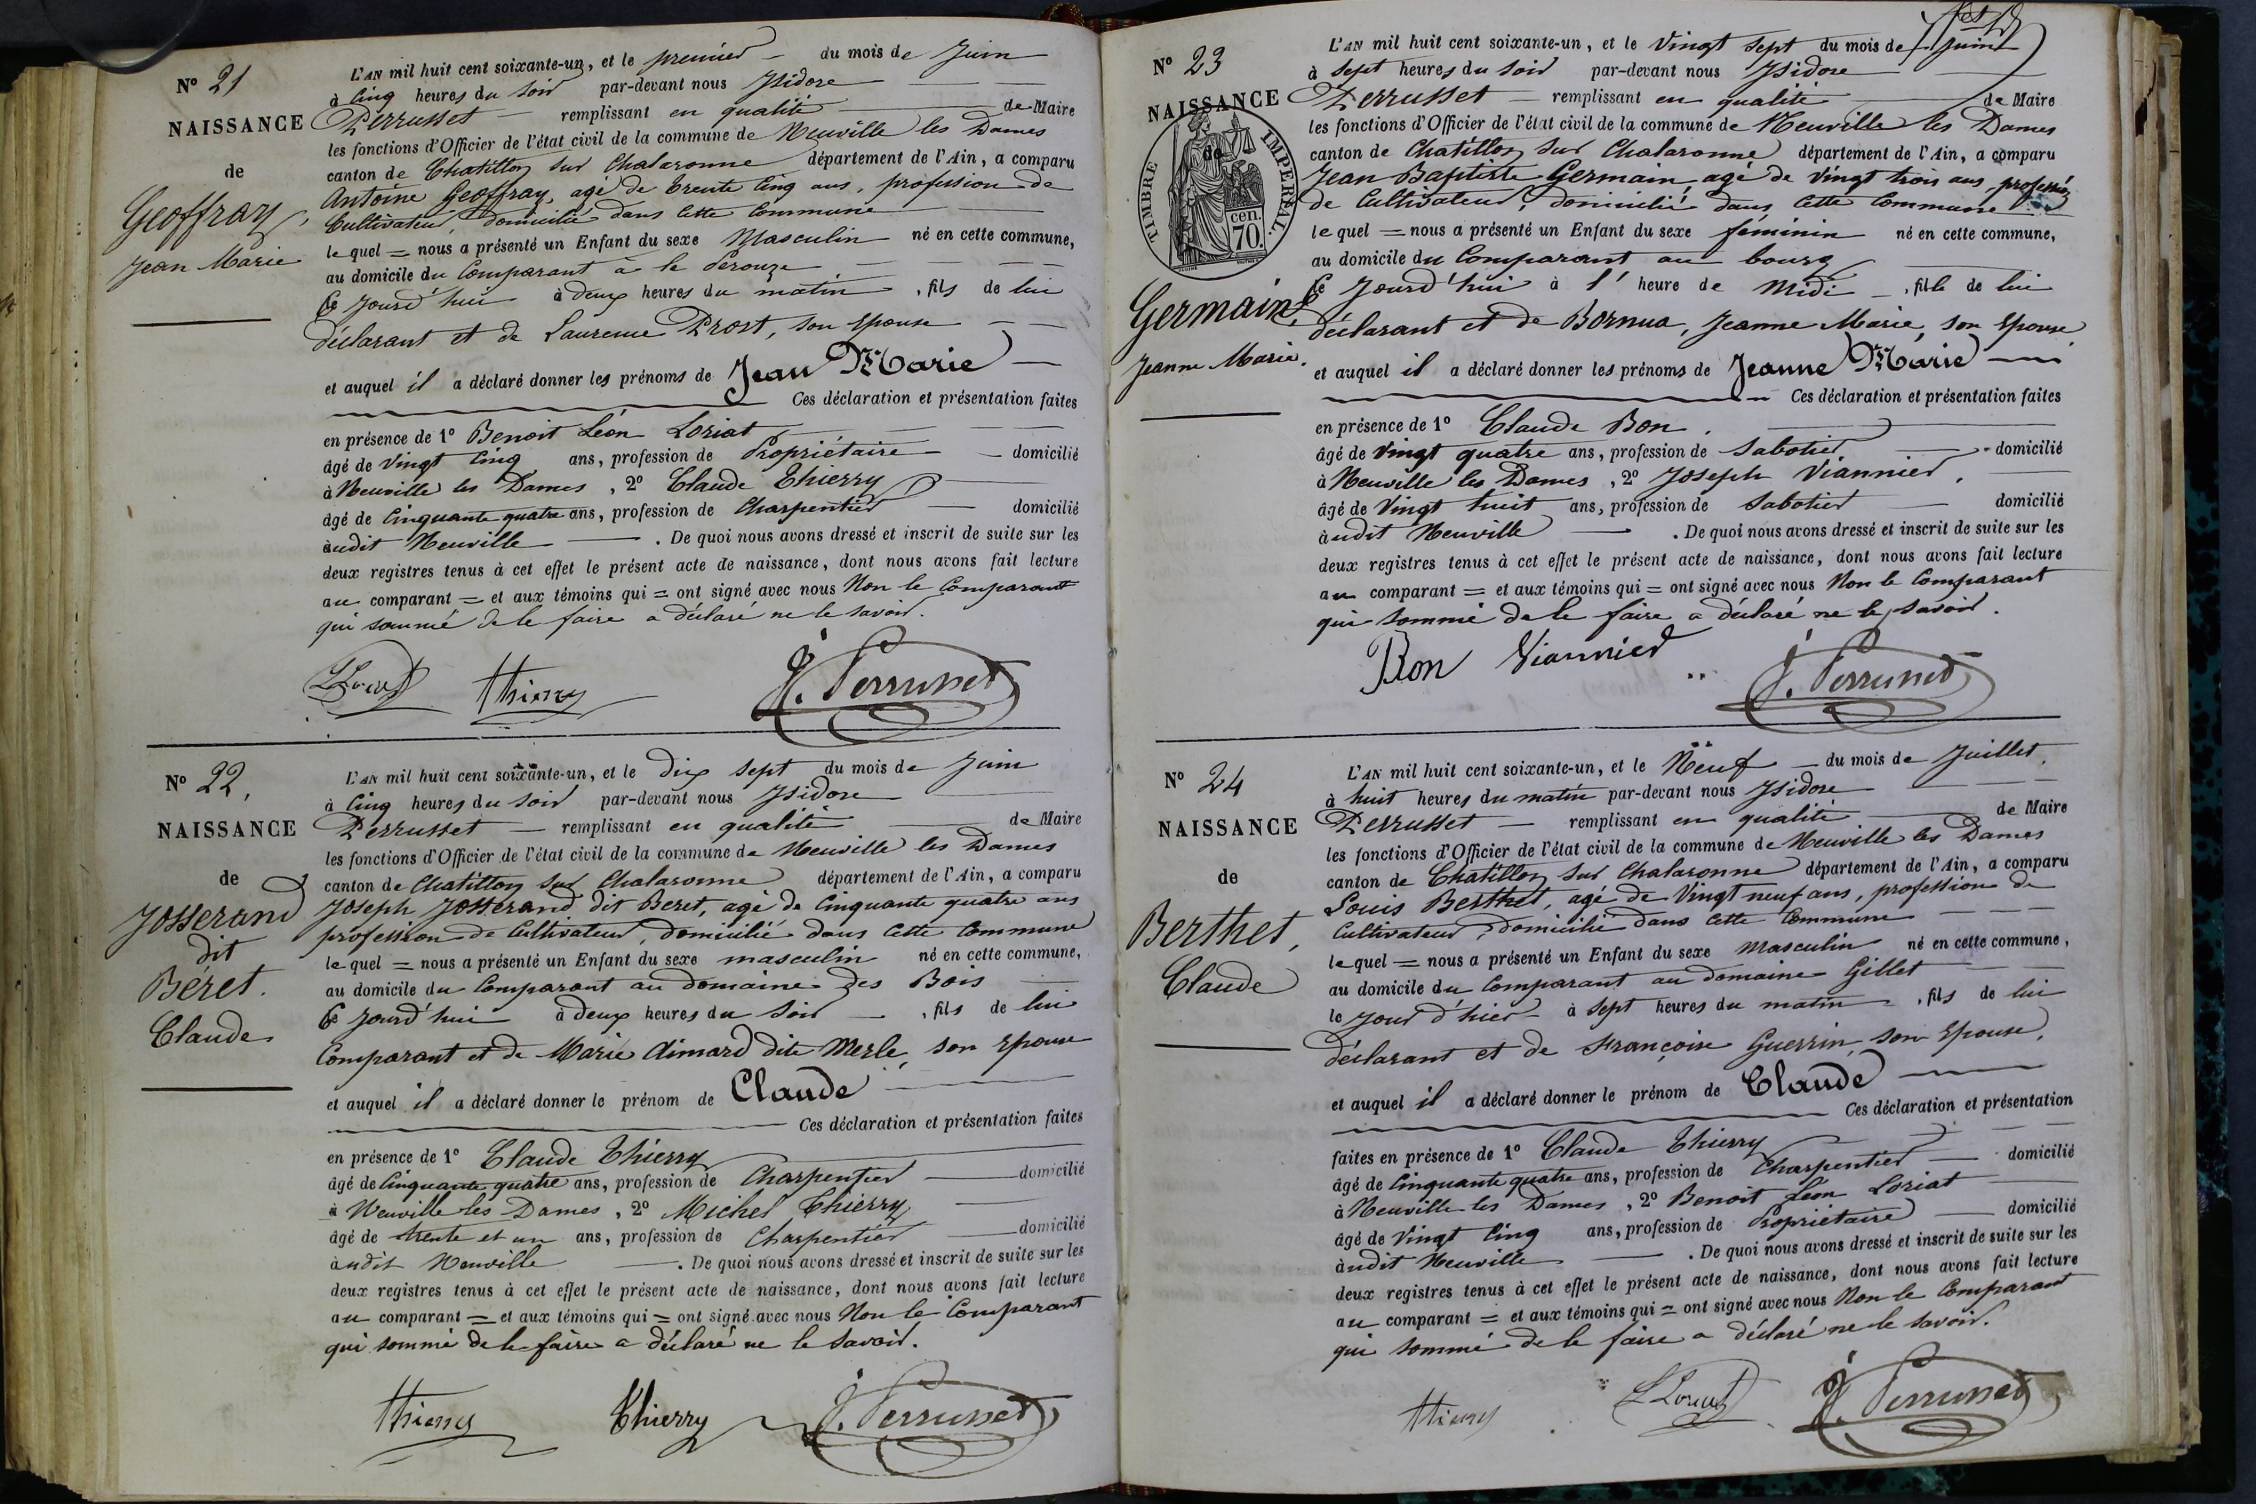 N° 21
NAISSANCE
de
Geoffray,
Jean Marie
L'AN mil huit cent soixante-un, et le premier du mois de Juin
à Cinq heures du Soir par-devant nous Isidore
Perrusset remplissant en qualité de Maire
les fonctions d'Officier de l'état civil de la commune de Neuville les Dames
canton de Chatillon sur Chalaronne département de l'Ain, a comparu
Antoine Geoffray, agé de trente Cinq ans, profession de
Cultivateur, domicilié dans Cette Commune
lequel = nous a présenté un Enfant du sexe Masculin né en cette commune,
au domicile du Comparant à la
Ce Jourd'hui à deux heures du matin, fils de lui
déclarant et de Laurence Prost, son Epouse
et auquel il a déclaré donner les prénoms de Jean Marie
Ces déclaration et présentation faites
en présence de 1° Benoit Léon Loriat
âgé de Vingt Cinq ans, profession de Propriétaire domicilié
à Neuville les Dames, 2° Claude Thierry
âgé de Cinquante quatre ans, profession de Charpentier domicilié
àudit Neuville . De quoi nous avons dressé et inscrit de suite sur les
deux registres tenus à cet effet le présent acte de naissance, dont nous avons fait lecture
au comparant = et aux témoins qui = ont signé avec nous Non le Comparant
qui sommé de le faire a déclaré ne le savoir.
LLoriat Thierry J. Perrusset
N° 22,
NAISSANCE
de
Josserand
dit
Béret.
Claude
L'AN mil huit cent soixante-un, et le dix sept du mois de Juin
à Cinq heures du Soir par-devant nous Isidore
Perrusset remplissant en qualité de Maire
les fonctions d'Officier de l'état civil de la commune de Neuville les Dames
canton de Chatillon sur Chalaronne département de l'Ain, a comparu
Joseph Josserand dit Beret, agé de Cinquante quatre ans
profession de Cultivateur, domicilié dans Cette Commune
lequel = nous a présenté un Enfant du sexe masculin né en cette commune,
au domicile du Comparant au domaine des Bois
Ce Jourd'hui à deux heures du Soir , fils de lui
Comparant et de Marie Aimard dite Merle, son Epouse
et auquel il a déclaré donner le prénom de Claude
Ces déclaration et présentation faites
en présence de 1° Claude Thierry
âgé de Cinquante quatre ans, profession de Charpentier domicilié
à Neuville les Dames, 2° Michel Thierry
âgé de trente et un ans, profession de Charpentier domicilié
àudit Neuville . De quoi nous avons dressé et inscrit de suite sur les
deux registres tenus à cet effet le présent acte de naissance, dont nous avons fait lecture
au comparant = et aux témoins qui = ont signé avec nous Non le Comparant
qui sommé de le faire a déclaré ne le savoir.
Thierry Thierry J. Perrusset
N° 23
NAISSANCE
de
TIMBRE IMPERIAL.
70. cen.
Germain,
Jeanne Marie.
L'AN mil huit cent soixante-un, et le Vingt Sept du mois de Juin
à Sept heures du Soir par-devant nous Isidore
Perrusset remplissant en qualité de Maire
les fonctions d'Officier de l'état civil de la commune de Neuville les Dames
canton de Chatillon sur Chalaronne département de l'Ain, a comparu
Jean Baptiste Germain agé de Vingt trois ans, profession
de Cultivateur, domicilié dans Cette Commune
lequel = nous a présenté un Enfant du sexe féminin né en cette commune,
au domicile du Comparant au bourg
Ce Jourd'hui à l'heure de Midi , fille de lui
déclarant et de Bornua, Jeanne Marie, son Epouse
et auquel il a déclaré donner les prénoms de Jeanne Marie
Ces déclaration et présentation faites
en présence de 1° Claude Bon.
âgé de Vingt quatre ans, profession de Sabotier domicilié
à Neuville les Dames, 2° Joseph Viannier,
âgé de Vingt huit ans, profession de Sabotier domicilié
àudit Neuville . De quoi nous avons dressé et inscrit de suite sur les
deux registres tenus à cet effet le présent acte de naissance, dont nous avons fait lecture
au comparant = et aux témoins qui = ont signé avec nous Non le Comparant
qui sommé de le faire a déclaré ne le savoir.
Bon Viannier J. Perrusset
N° 24
NAISSANCE
de
Berthet,
Claude
L'AN mil huit cent soixante-un, et le Neuf du mois de Juillet,
à huit heures du matin par-devant nous Isidore
Perrusset remplissant en qualité de Maire
les fonctions d'Officier de l'état civil de la commune de Neuville les Dames
canton de Chatillon sur Chalaronne département de l'Ain, a comparu
Louis Berthet, agé de Vingt neuf ans, profession de
Cultivateur, domicilié dans Cette Commune
lequel = nous a présenté un Enfant du sexe masculin né en cette commune,
au domicile du Comparant au domaine Gillet
le Jour d'hier à Sept heures du matin , fils de lui
déclarant et de Françoise Guerrin, son Epouse,
et auquel il a déclaré donner le prénom de Claude
Ces déclaration et présentation
faites en présence de 1° Claude Thierry domicilié
âgé de Cinquante quatre ans, profession de Charpentier
à Neuville les Dames, 2° Benoit Léon Loriat
âgé de Vingt Cinq ans, profession de Propriétaire domicilié
àudit Neuville . De quoi nous avons dressé et inscrit de suite sur les
deux registres tenus à cet effet le présent acte de naissance, dont nous avons fait lecture
au comparant = et aux témoins qui = ont signé avec nous Non le Comparant
qui sommé de le faire a déclaré ne le savoir.
Thierry LLoriat J. Perrusset